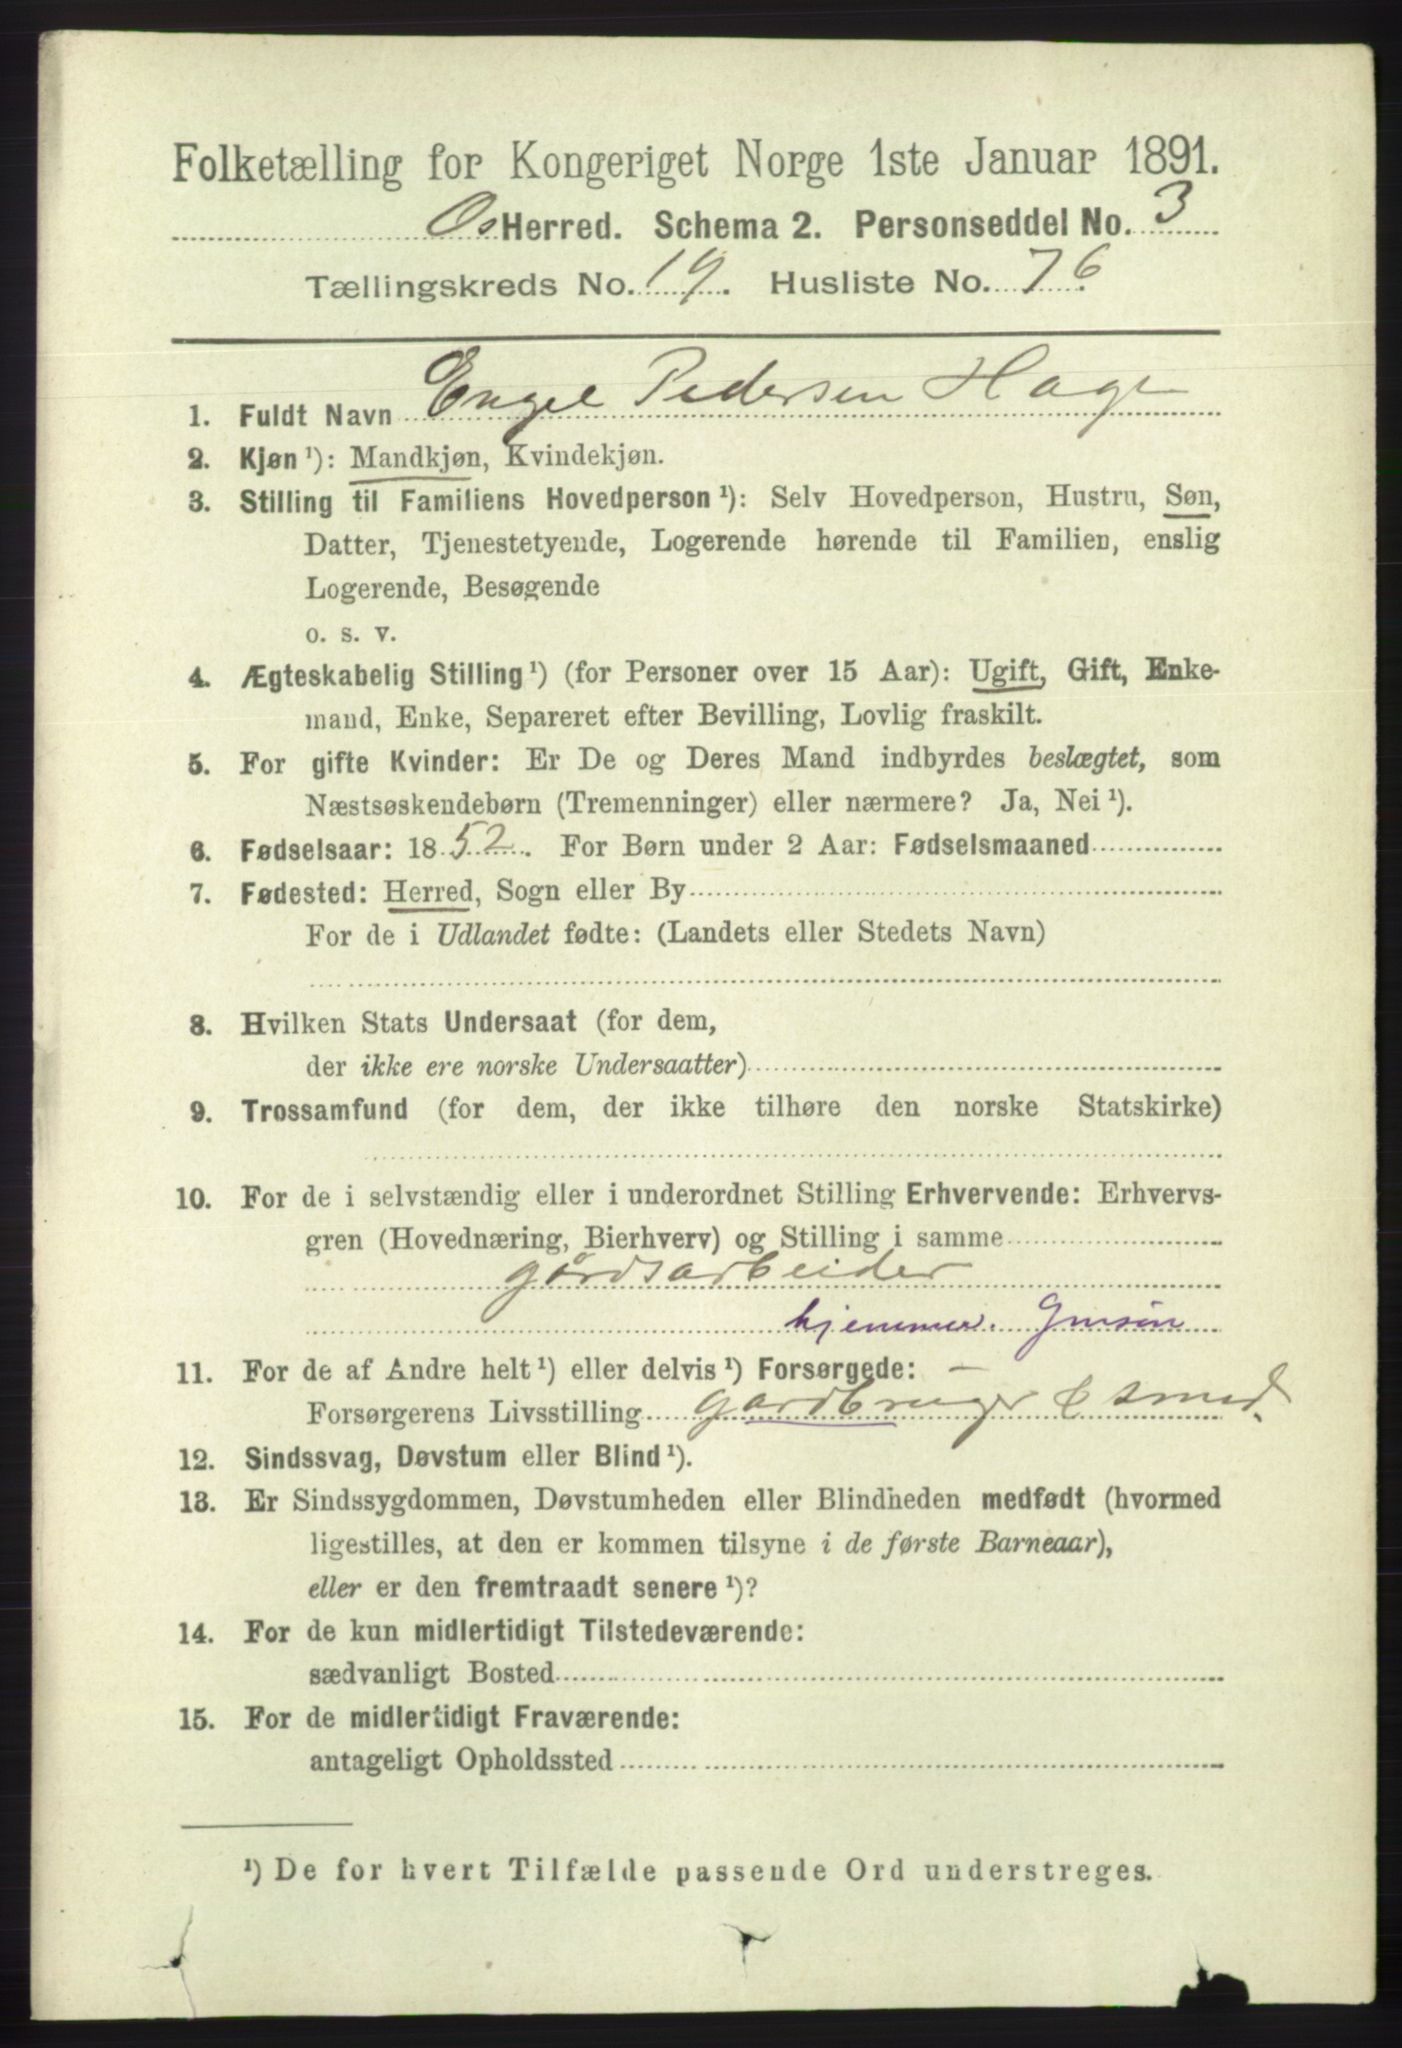 Folketælling for Kongeriget Norge 1ste Januar 1891.
Os Herred. Schema 2. Personseddel No. 3
Tællingskreds No. 19. Husliste No. 76
1. Fuldt Navn Engel Pedersen Hage
2. Kjøn ¹): Mandkjøn, Kvindekjøn.
3. Stilling til Familiens Hovedperson ¹): Selv Hovedperson, Hustru, Søn,
Datter, Tjenestetyende, Logerende hørende til Familien, enslig
Logerende, Besøgende
o. s. v.
4. Ægteskabelig Stilling ¹) (for Personer over 15 Aar): Ugift, Gift, Enke-
mand, Enke, Separeret efter Bevilling, Lovlig fraskilt.
5. For gifte Kvinder: Er De og Deres Mand indbyrdes beslægtet, som
Næstsøskendebørn (Tremenninger) eller nærmere? Ja, Nei ¹).
6. Fødselsaar: 1852. For Børn under 2 Aar: Fødselsmaaned
7. Fødested: Herred, Sogn eller By
For de i Udlandet fødte: (Landets eller Stedets Navn)
8. Hvilken Stats Undersaat (for dem,
der ikke ere norske Undersaatter)
9. Trossamfund (for dem, der ikke tilhøre den norske Statskirke)
10. For de i selvstændig eller i underordnet Stilling Erhvervende: Erhvervs-
gren (Hovednæring, Bierhverv) og Stilling i samme
gårdsarbeider
hjemmev. Gmsøn
11. For de af Andre helt ¹) eller delvis ¹) Forsørgede: –
Forsørgerens Livsstilling gardbruger & smed.
12. Sindssvag, Døvstum eller Blind ¹).
13. Er Sindssygdommen, Døvstumheden eller Blindheden medfødt (hvormed
ligestilles, at den er kommen tilsyne i de første Barneaar),
eller er den fremtraadt senere ¹)?
14. For de kun midlertidigt Tilstedeværende:
sædvanligt Bosted
15. For de midlertidigt Fraværende:
antageligt Opholdssted
¹) De for hvert Tilfælde passende Ord understreges.